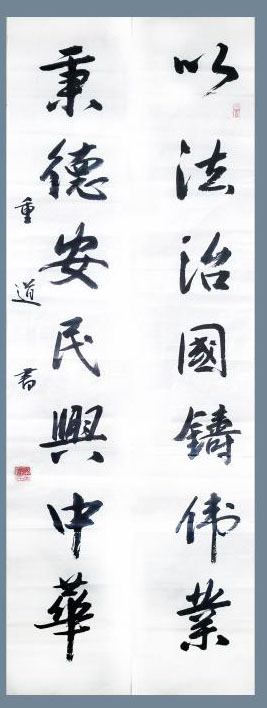 以法治國鑄伟業
秉德安民興中華
重道書